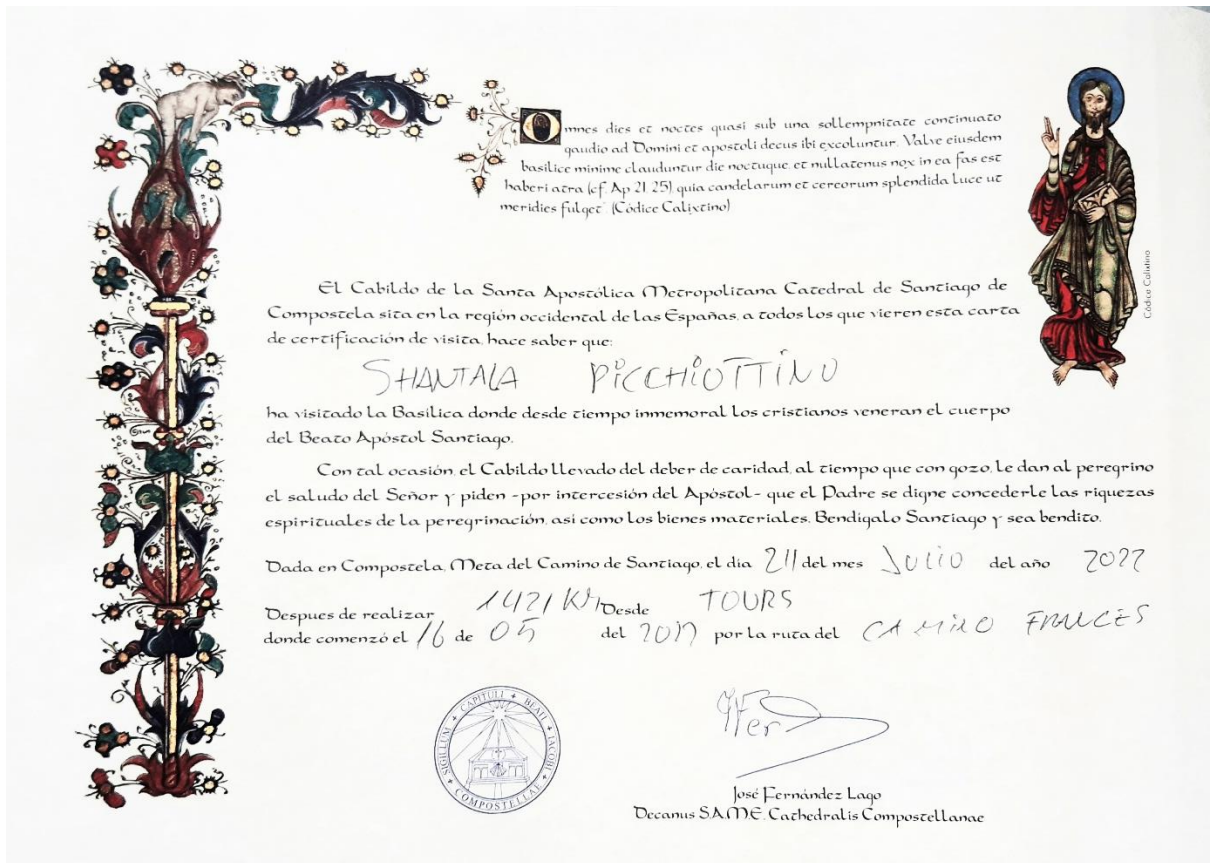 Omnes dies et noctes quasi sub una sollempnitate continuato
gaudio ad Domini et apostoli decus ibi excoluntur. Valve eiusdem
basilice minime clauduntur die noctuque, et nullatenus nox in ea fas est
haberi atra (cf. Ap 21, 25), quia candelarum et cereorum splendida luce ut
meridies fulget" (Códice Calixtino)
Códice Calixtino
El Cabildo de la Santa Apostólica Metropolitana Catedral de Santiago de
Compostela sita en la región occidental de las Españas, a todos los que vieren esta carta
de certificación de visita, hace saber que:
SHANTALA PICCHIOTTINO
ha visitado la Basílica donde desde tiempo inmemoral los cristianos veneran el cuerpo
del Beato Apóstol Santiago.
Con tal ocasión, el Cabildo llevado del deber de caridad, al tiempo que con gozo, le dan al peregrino
el saludo del Señor y piden -por intercesión del Apóstol- que el Padre se digne concederle las riquezas
espirituales de la peregrinación, así como los bienes materiales. Bendígalo Santiago y sea bendito.
Dada en Compostela, Meta del Camino de Santiago, el día del mes Julio del año 2022
Despues de realizar 1421 Km Desde TOURS
donde comenzó el 16 de 05 del por la ruta del CAMINO FRANCES
SIGILLUM + CAPITULI + BEATI + IACOBI + COMPOSTELLAE +
José Fernández Lago
Decanus S.A.M.E. Cathedralis Compostellanae